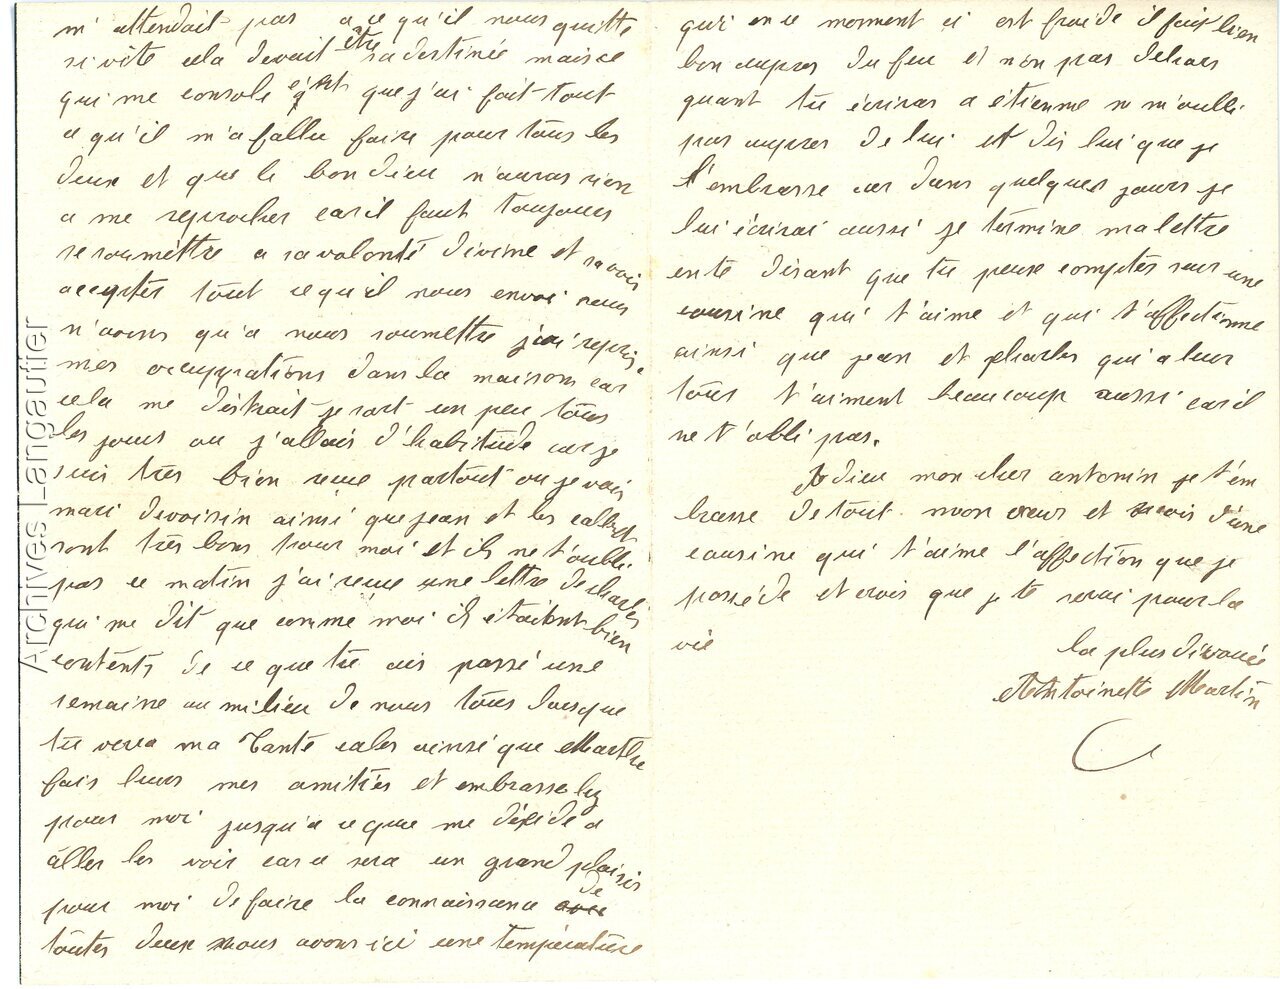 m'attendait pas a ce qu'il nous quitte
si vite cela devait être sa destinée mais ce
qui me console c'est que j'ai fait tout
ce qu'il m'a fallu faire pour tous les
deux et que le bon dieu n'auras rien
a me reprocher car il faut toujours
se soumettre a sa volonté divine et savoir
accepter tout ce qu'il nous envoi nous
n'avons qu'a nous soumettre j'ai repris
mes occupations dans la maison car
cela me distrait je sort un peu tous
les jours ou j'allais d'habitude car je
suis très bien reçue partout ou je vais
mari devoisin ainsi que jean et les
sont très bons pour moi et ils ne t'oubli
pas ce matin j'ai reçue une lettre de charles
qui me dit que comme moi ils étaient bien
contents de ce que tu ais passé une
semaine au milieu de nous tous lorsque
tu verra ma Tante ainsi que Marthe
fais leurs mes amitiés et embrasse les
pour moi jusqu'a ce que me décide a
aller les voir car ce sera un grand plaisir
pour moi de faire la connaissance de
toutes deux nous avons ici une température
qui en ce moment ci est froide il fait bien
bon aupres du feu et non pas dehors
quant tu écriras a étienne ne m'oubli
pas aupres de lui et dis lui que je
l'embrasse car dans quelques jours je
lui écrirai aussi je termine ma lettre
en te disant que tu peux compter sur une
cousine qui t'aime et qui t'affectionne
ainsi que jean et charles qui a leur
tous t'aiment beaucoup aussi car il
ne t'obli pas.
Adieu mon cher antonin je t'em
brasse de tout mon cœur et reçois d'une
cousine qui t'aime l'affection que je
possède et crois que je te serai pour la
vie
la plus dévouée
Antoinette Martin
Archives Langautier